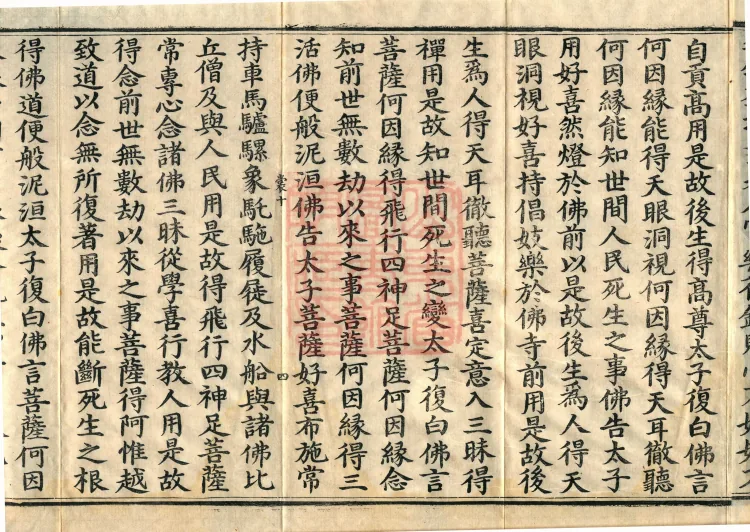 自貢高用是故後生得高尊太子復白佛言
何因緣能得天眼洞視何因緣得天耳徹聽
何因緣能知世間人民死生之事佛告太子
用好喜然燈於佛前以是故後生爲人得天
眼洞視好喜持倡妓樂於佛寺前用是故後
生爲人得天耳徹聽菩薩喜定意入三昧得
禪用是故知世間死生之變太子復白佛言
菩薩何因緣得飛行四神足菩薩何因緣念
知前世無數劫以來之事菩薩何因緣得三
活佛便般泥洹佛告太子菩薩好喜布施常
四
持車馬驢騾象馲駞履屣及水船與諸佛比
丘僧及與人民用是故得飛行四神足菩薩
常專心念諸佛三昧從學喜行教人用是故
得念前世無數劫以來之事菩薩得阿惟越
致道以念無所復著用是故能斷死生之根
得佛道便般泥洹太子復白佛言菩薩何因